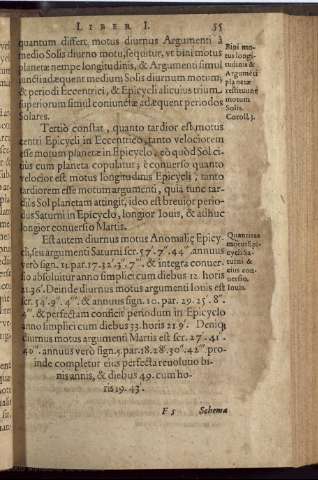 LIBER I. 55
quantum differt motus diurnus Argumenti à
medio Solis diurno motu, sequitur, vt bini motus
planetæ nempe longitudinis, & Argumenti simul
iuncti adæquent medium Solis diurnum motum,
& periodi Eccentrici, & Epicycli alicuius trium
superiorum simul coniunctæ adæquent periodos
Solares.
Bini mo-
tus longi-
tudinis &
Argumẽti
planetæ
restituunt
motum
Solis.
Coroll. 3.
Tertiò constat, quanto tardior est motus
centri Epicycli in Eccentrico, tanto velociorem
esse motum planetæ in Epicyclo, eò quòd Sol ci-
tius cum planeta copulatur; è conuerso quanto
velocior est motus longitudinis Epicycli, tanto
tardiorem esse motum argumenti, quia tunc tar-
diùs Sol planetam attingit, ideo est breuior perio-
dus Saturni in Epicyclo, longior Iouis, & adhuc
longior conuersio Martis.
Est autem diurnus motus Anomaliæ Epicy-
cli, seu argumenti Saturni scr. 57. 7. 44. annuus
verò sign. 11. par. 17. 32. 3. 7. & integra conuer-
sio absoluitur anno simplici cum diebus 12. horis
Quantitas
motus Epi-
cycli Sa-
turni &
eius con-
uersio,
Iouis.
21. 36. Deinde diurnus motus argumenti Iouis est
scr. 54. 9. 4. & annuus sign. 10. par. 29. 25. 8.
& perfectam conficit periodum in Epicyclo
anno simplici cum diebus 33. horis 21. 9. Deniq;
diurnus motus argumenti Martis est scr. 27. 41.
40. annuus verò sign. 5. par. 18. 28. 30. 42. pro-
inde completur eius perfecta reuolutio bi-
nis annis, & diebus 49. cum ho-
ris 19. 43.
F 5 Schema